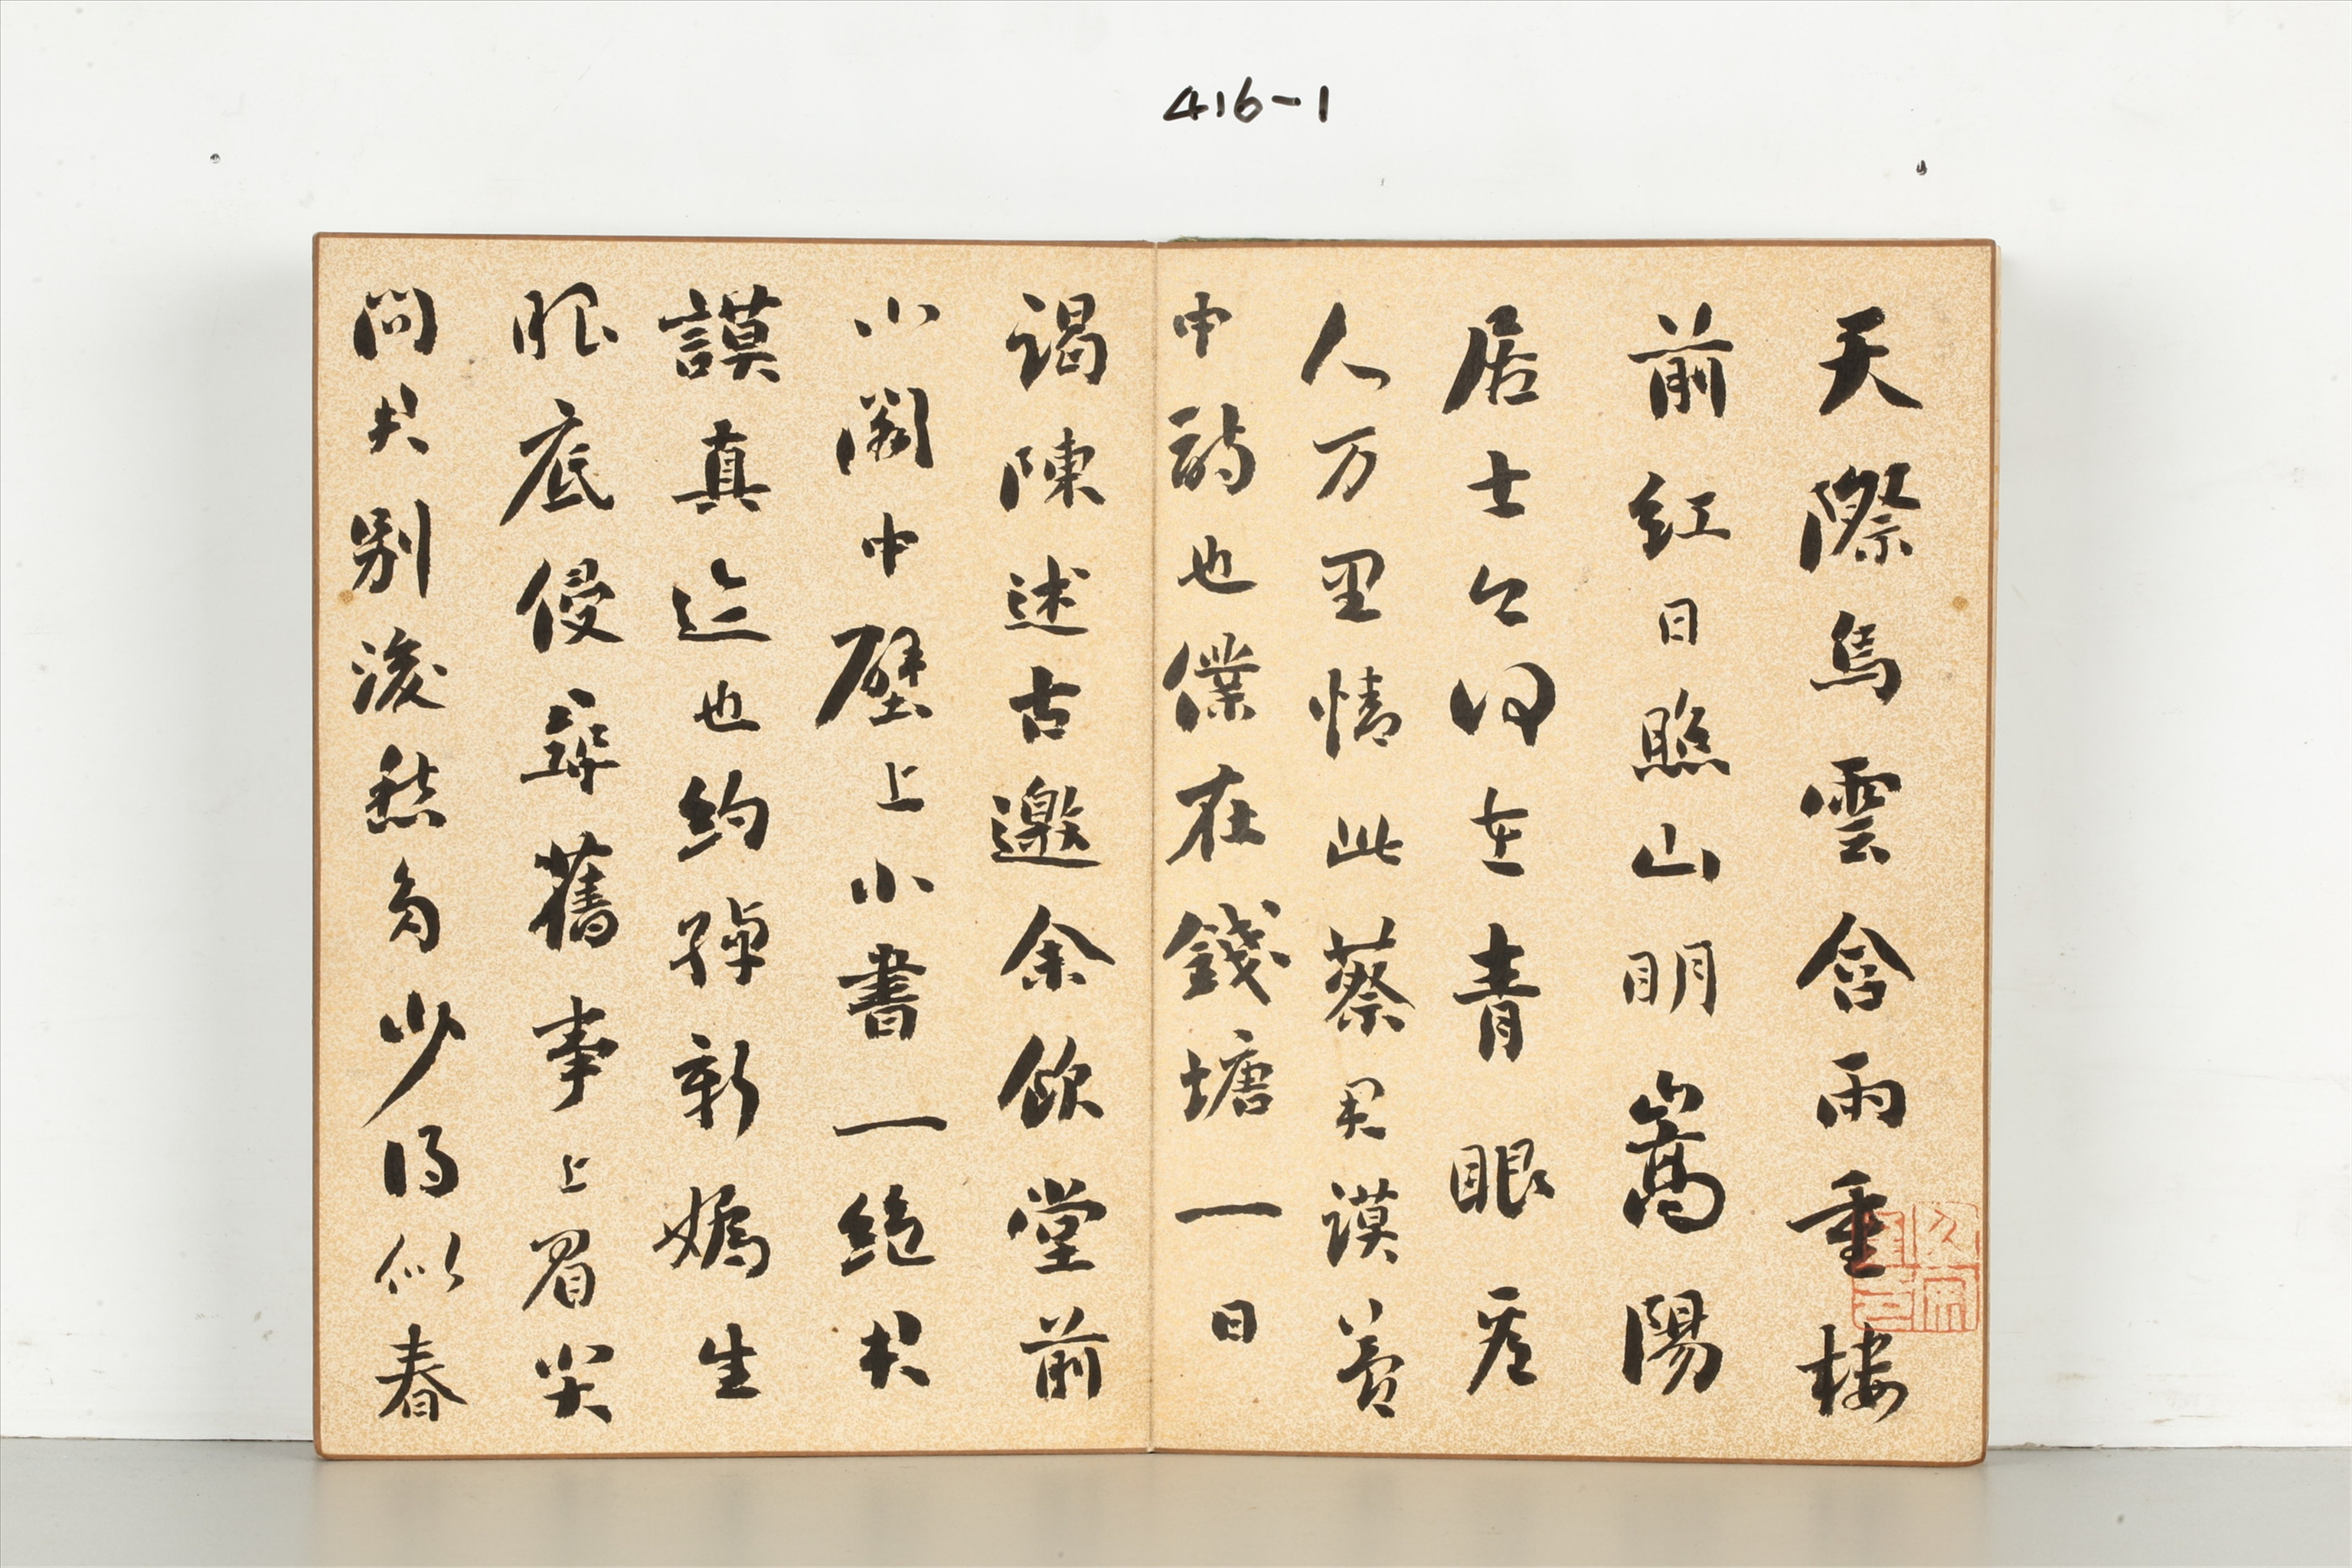 416-1
天際烏雲含雨重樓
前紅日照山明嵩陽
居士今何在青眼看
人万里情此蔡君謨夢
中詩也僕在錢塘一日
謁陳述古邀余飲堂前
小閣中壁上小書一絕君
謨真迹也約綽新嬌生
眼底侵尋舊事上眉尖
問君別後愁多少得似春